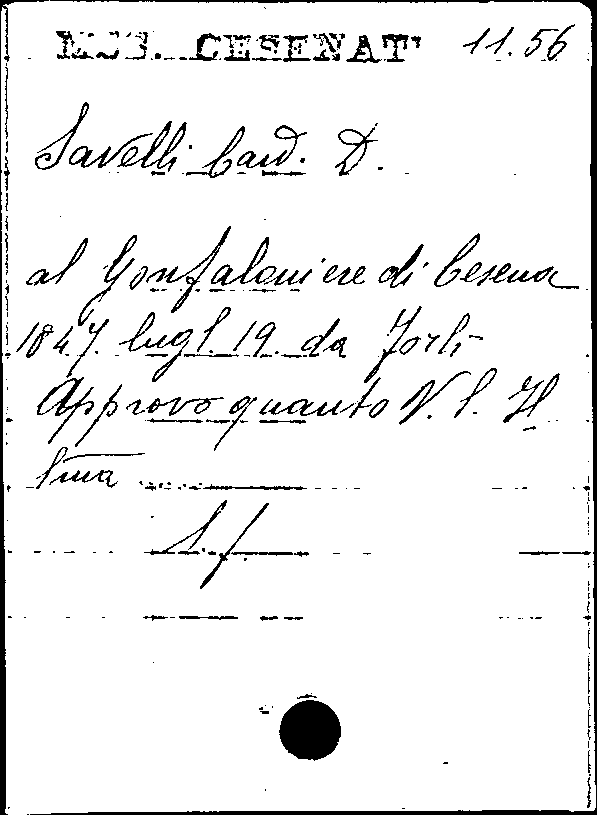 MSS. CESENATI 11.56
Savelli Card. D.
al Gonfaloniere di Cesena
1847. lugl. 19. da Forlì
Approvo quanto V. S. Il
l̅m̅a ........
L. f.